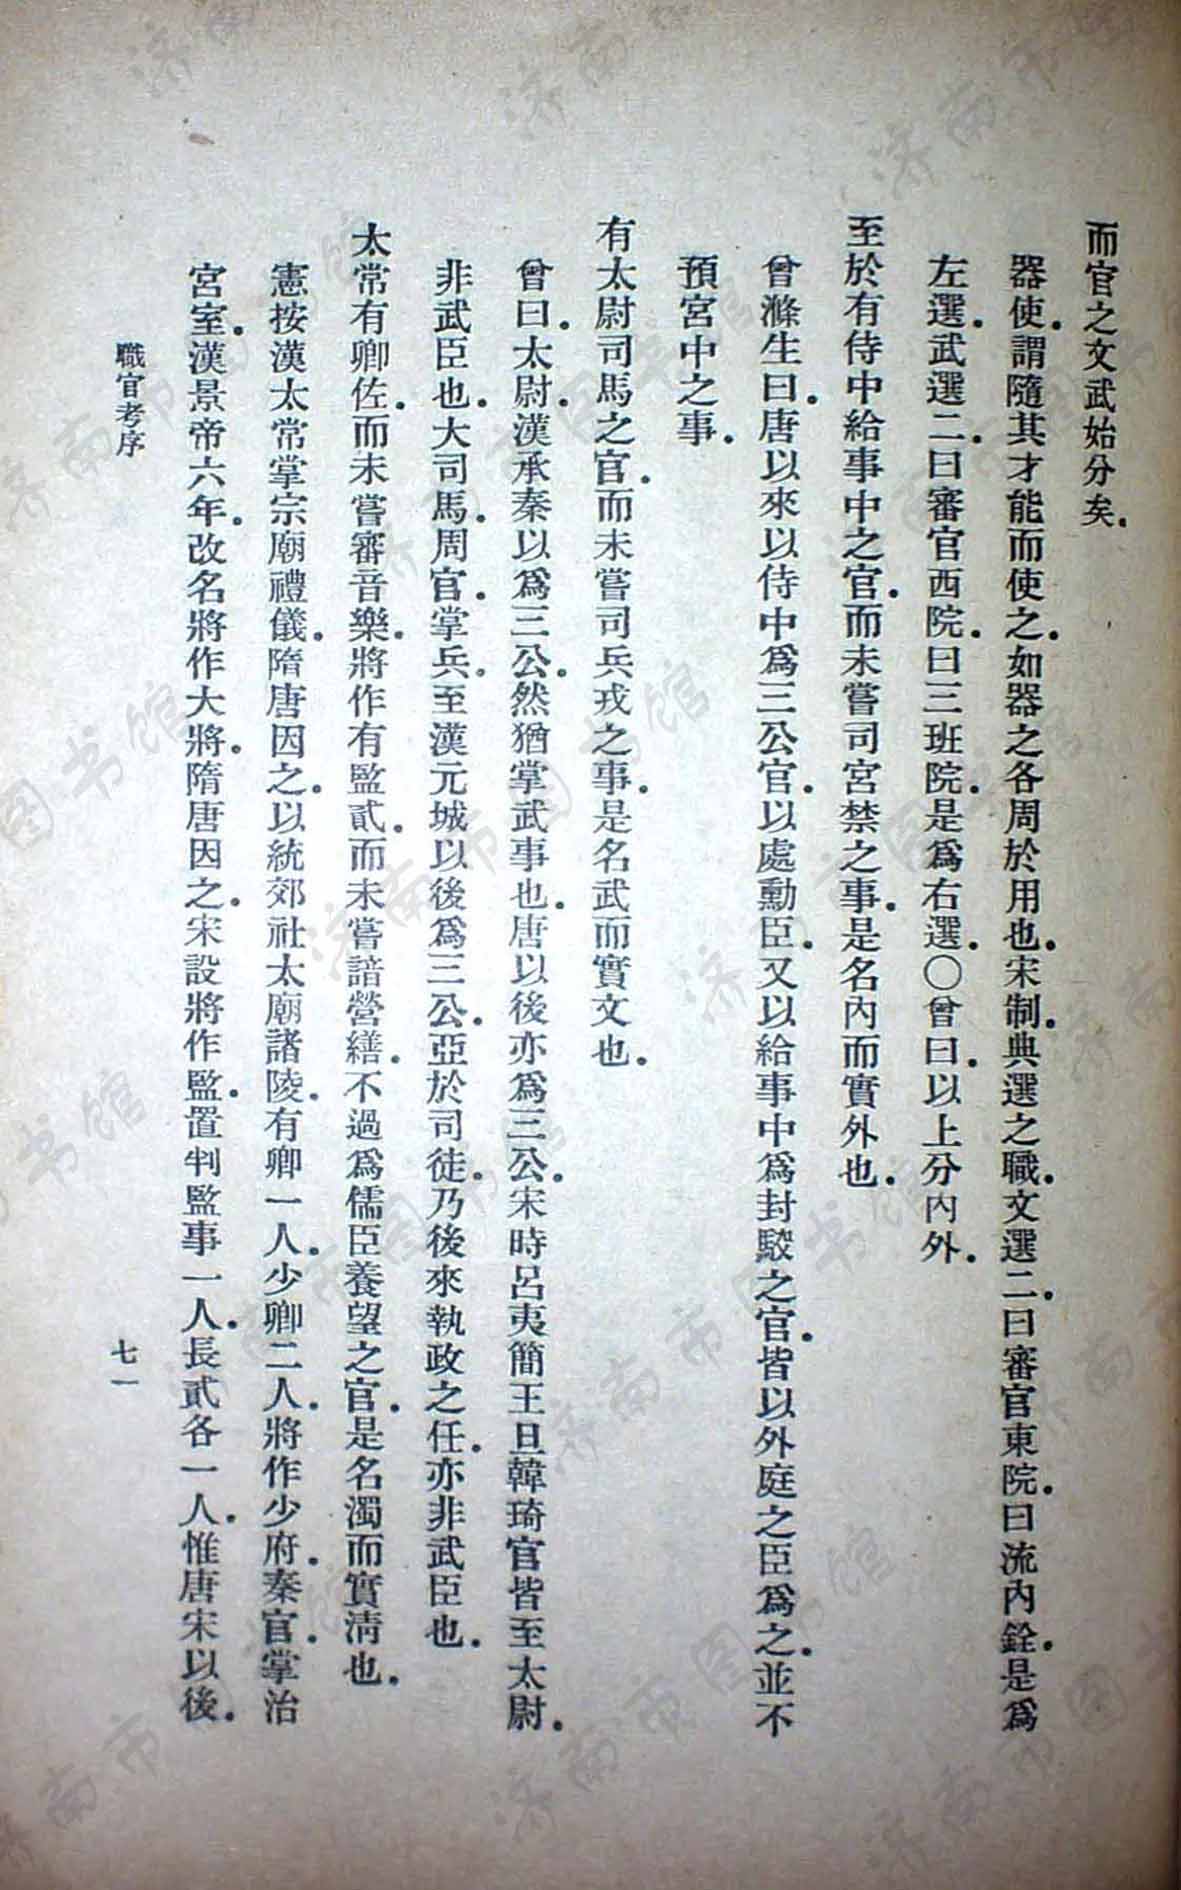 而官之文武始分矣．
器使．謂隨其才能而使之．如器之各周於用也．宋制．典選之職．文選二．曰審官東院．曰流內銓．是爲
左選．武選二．曰審官西院．曰三班院．是爲右選．○曾曰．以上分內外．
至於有侍中給事中之官．而未嘗司宮禁之事．是名內而實外也．
曾滌生曰．唐以來以侍中爲三公官．以處勳臣．又以給事中爲封駮之官．皆以外庭之臣爲之．並不
預宮中之事．
有太尉司馬之官．而未嘗司兵戎之事．是名武而實文也．
曾曰．太尉．漢承秦以爲三公．然猶掌武事也．唐以後亦爲三公．宋時呂夷簡王旦韓琦官皆至太尉．
非武臣也．大司馬．周官．掌兵．至漢元城以後爲三公．亞於司徒．乃後來執政之任．亦非武臣也．
太常有卿佐．而未嘗審音樂．將作有監貳．而未嘗諳營繕．不過爲儒臣養望之官．是名濁而實清也．
憲按漢太常掌宗廟禮儀．隋唐因之．以統郊社太廟諸陵．有卿一人．少卿二人．將作少府．秦官．掌治
宮室．漢景帝六年．改名將作大將．隋唐因之．宋設將作監．置判監事一人．長貳各一人．惟唐宋以後．
職官考序
七一
济南市图书馆